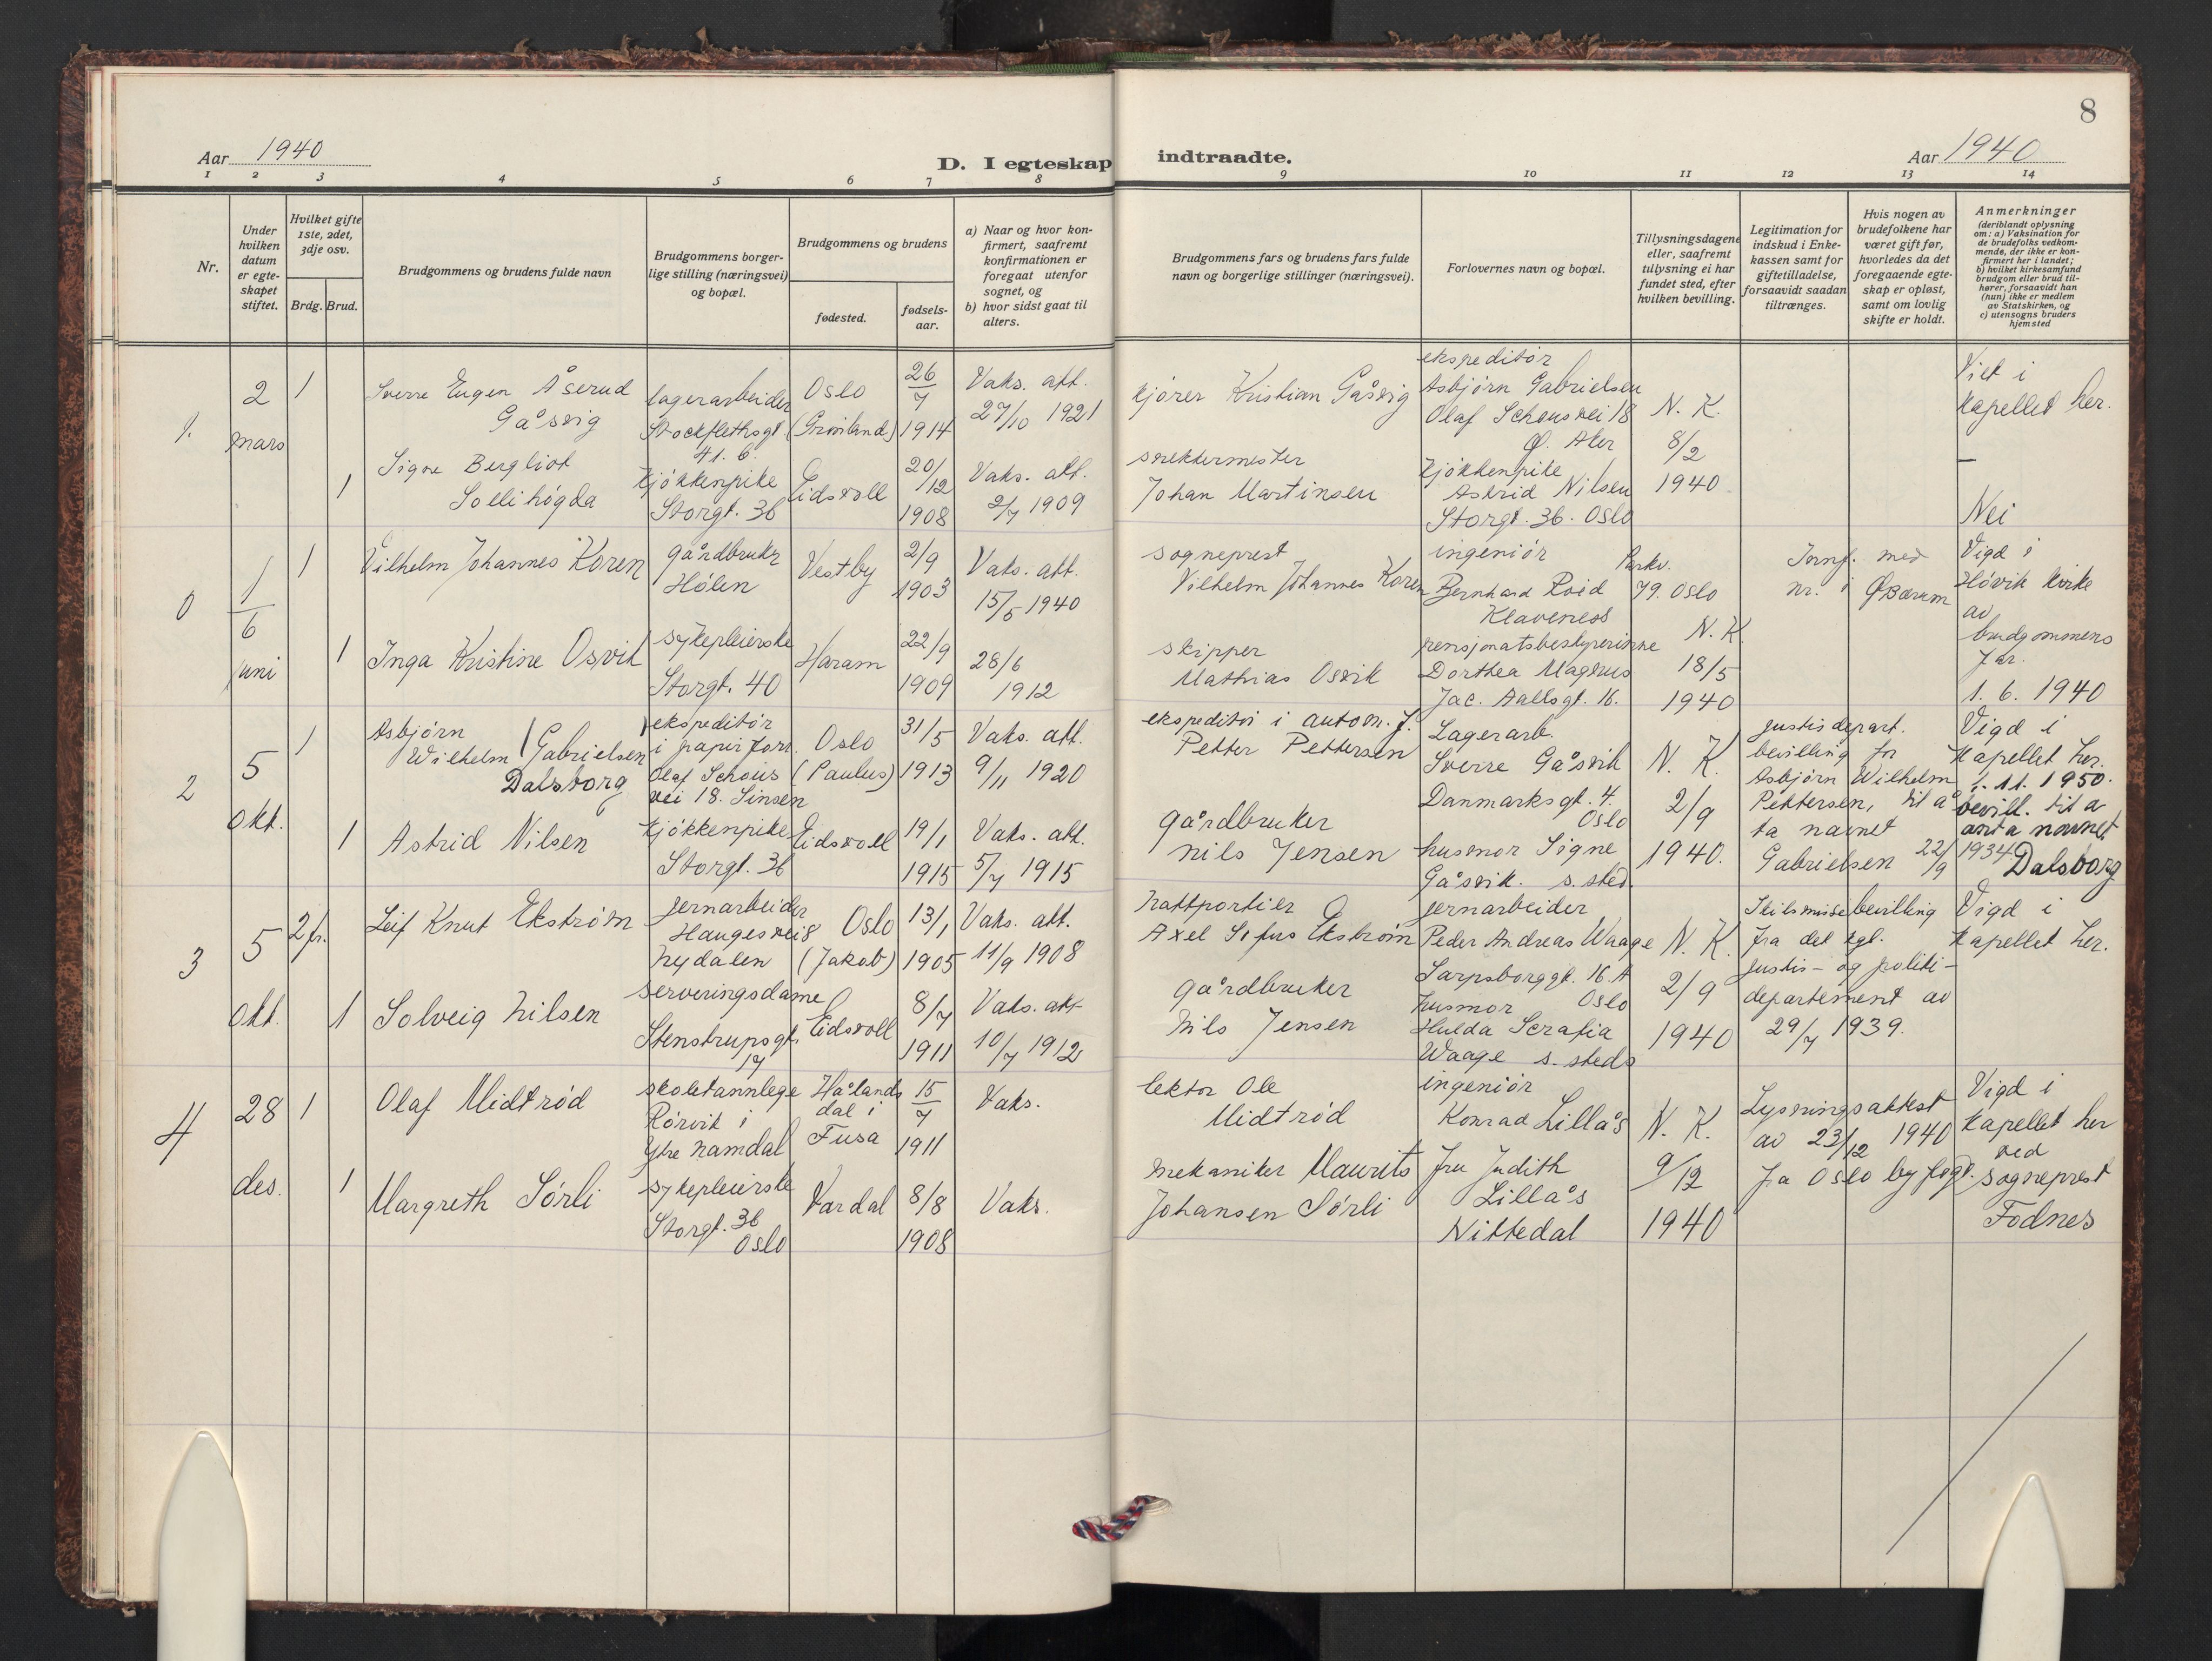 8
Aar 1940
D. I egteskap indtraadte.
Aar 1940
1 2 3 4 5 6 7 8 9 10 11 12 13 14
Nr.
Under
hvilken
datum
er egte-
skapet
stiftet.
Hvilket gifte
1ste, 2det,
3dje osv.
Brdg. Brud.
Brudgommens og brudens fulde navn
Brudgommens borger-
lige stilling (næringsvei)
og bopæl.
Brudgommens og brudens
fødested.
fødsels-
aar.
a) Naar og hvor kon-
firmert, saafremt
konfirmationen er
foregaat utenfor
sognet, og
b) hvor sidst gaat til
alters.
Brudgommens fars og brudens fars fulde
navn og borgerlige stillinger (næringsvei).
Forlovernes navn og bopæl.
Tillysningsdagene
eller, saafremt
tillysning ei har
fundet sted, efter
hvilken bevilling.
Legitimation for
indskud i Enke-
kassen samt for
giftetilladelse,
forsaavidt saadan
tiltrænges.
Hvis nogen av
brudefolkene har
været gift før,
hvorledes da det
foregaaende egte-
skap er opløst,
samt om lovlig
skifte er holdt.
Anmerkninger
(deriblandt oplysning
om: a) Vaksination for
de brudefolks vedkom-
mende, der ikke er kon-
firmert her i landet;
b) hvilket kirkesamfund
brudgom eller brud til-
hører, forsaavidt han
(hun) ikke er medlem
av Statskirken, og
c) utensogns bruders
hjemsted
1.
2
mars
1
Sverre Eugen Åserud
Gåsvig
lagerarbeider
Stockflethsgt.
41. b.
Oslo
(Grønland)
26/7
1914
Vaks. att.
27/10 1921
kjører Kristian Gåsvig
ekspeditør
Asbjørn Gabrielsen
Olaf Schousvei 18
Ø. Aker
N. K.
8/2
1940
Viet i
kapellet her.
1
Signe Bergliot
Sollihøgda
kjøkkenpike
Storgt. 36
Eidsvoll
20/12
1908
Vaks. att.
2/7 1909
Johan Martinsen
kjøkkenpike
Astrid Nilsen
Storgt. 36. Oslo
—
Nei
0
1/6
juni
1
Vilhelm Johannes Koren
gårdbruker
Hølen
Vestby
2/9
1903
Vaks. att.
15/5 1940
sogneprest
Vilhelm Johannes Koren
ingeniør Parkv.
Bernhard Roid 79. Oslo
Klaveness
N. K.
18/5
1940
Jornf. med
nr. i Ø Bærum
Vigd i
Høvik kirke
av
brudgommens
far.
1. 6. 1940
1
Inga Kristine Osvik
sykepleierske
Storgt. 40
Haram
22/9
1909
28/6
1912
skipper
Mathias Osvik
pensjonatsbestyrerinne
Dorthea Magnus
Jac. Aallsgt. 16.
2
5
okt.
1
Asbjørn
Wilhelm (Gabrielsen)
Dalsborg
ekspeditør
i papirforr.
Olaf Schous
vei 18. Sinsen
Oslo
(Paulus)
31/5
1913
Vaks. att.
9/11 1920
ekspeditør i autom. f.
Petter Pettersen
Lagerarb.
Sverre Gåsvik
Danmarksgt. 4.
Oslo
N. K.
2/9
1940.
Justisdepart.
bevilling for
Asbjørn Wilhelm
Pettersen, til å
ta navnet
Gabrielsen 22/9 1934
Vigd i
kapellet her.
1.11.1950.
bevill. til å
anta navnet
Dalsborg
1
Astrid Nilsen
kjøkkenpike
Storgt. 36
Eidsvoll
19/1
1915
Vaks. att.
5/7 1915
gårdbruker
Nils Jensen
husmor Signe
Gåsvik. s. sted.
3
5
okt.
2 fr.
Leif Knut Ekstrøm
jernarbeider
Haugesvei 8
Nydalen
Oslo
(Jakob)
13/1
1905
Vaks. att.
11/9 1908
nattportier
Axel Sefus Ekstrøm
jernarbeider
Peder Andreas Waage
Sarpsborggt. 16 A
Oslo
N. K.
2/9
1940
Skilsmissebevilling
fra det kgl.
justis- og politi-
departement av
29/7 1939.
Vigd i
kapellet her.
1
Solveig Nilsen
serveringsdame
Stenstrupsgt.
17
Eidsvoll
8/7
1911
Vaks. att
10/7 1912
gårdbruker
Nils Jensen
husmor
Hulda Serafia
Waage s. steds
4
28
des.
1
Olaf Midtrød
skoletannlege
Rørvik i
Ytre Namdal
Hålands
dal i
Fusa
15/7
1911
Vaks.
lektor Ole
Midtrød
ingeniør
Konrad Lillås
N. K.
9/12
1940
Lysningsattest
av 23/12 1940
fra Oslo byfogt.
Vigd i
kapellet her
ved
sogneprest
Fodnes
1
Margreth Sørli
sykepleierske
Storgt. 36
Oslo
Vardal
8/8
1908
Vaks.
mekaniker Maurits
Johansen Sørli
fru Judith
Lillås
Nittedal